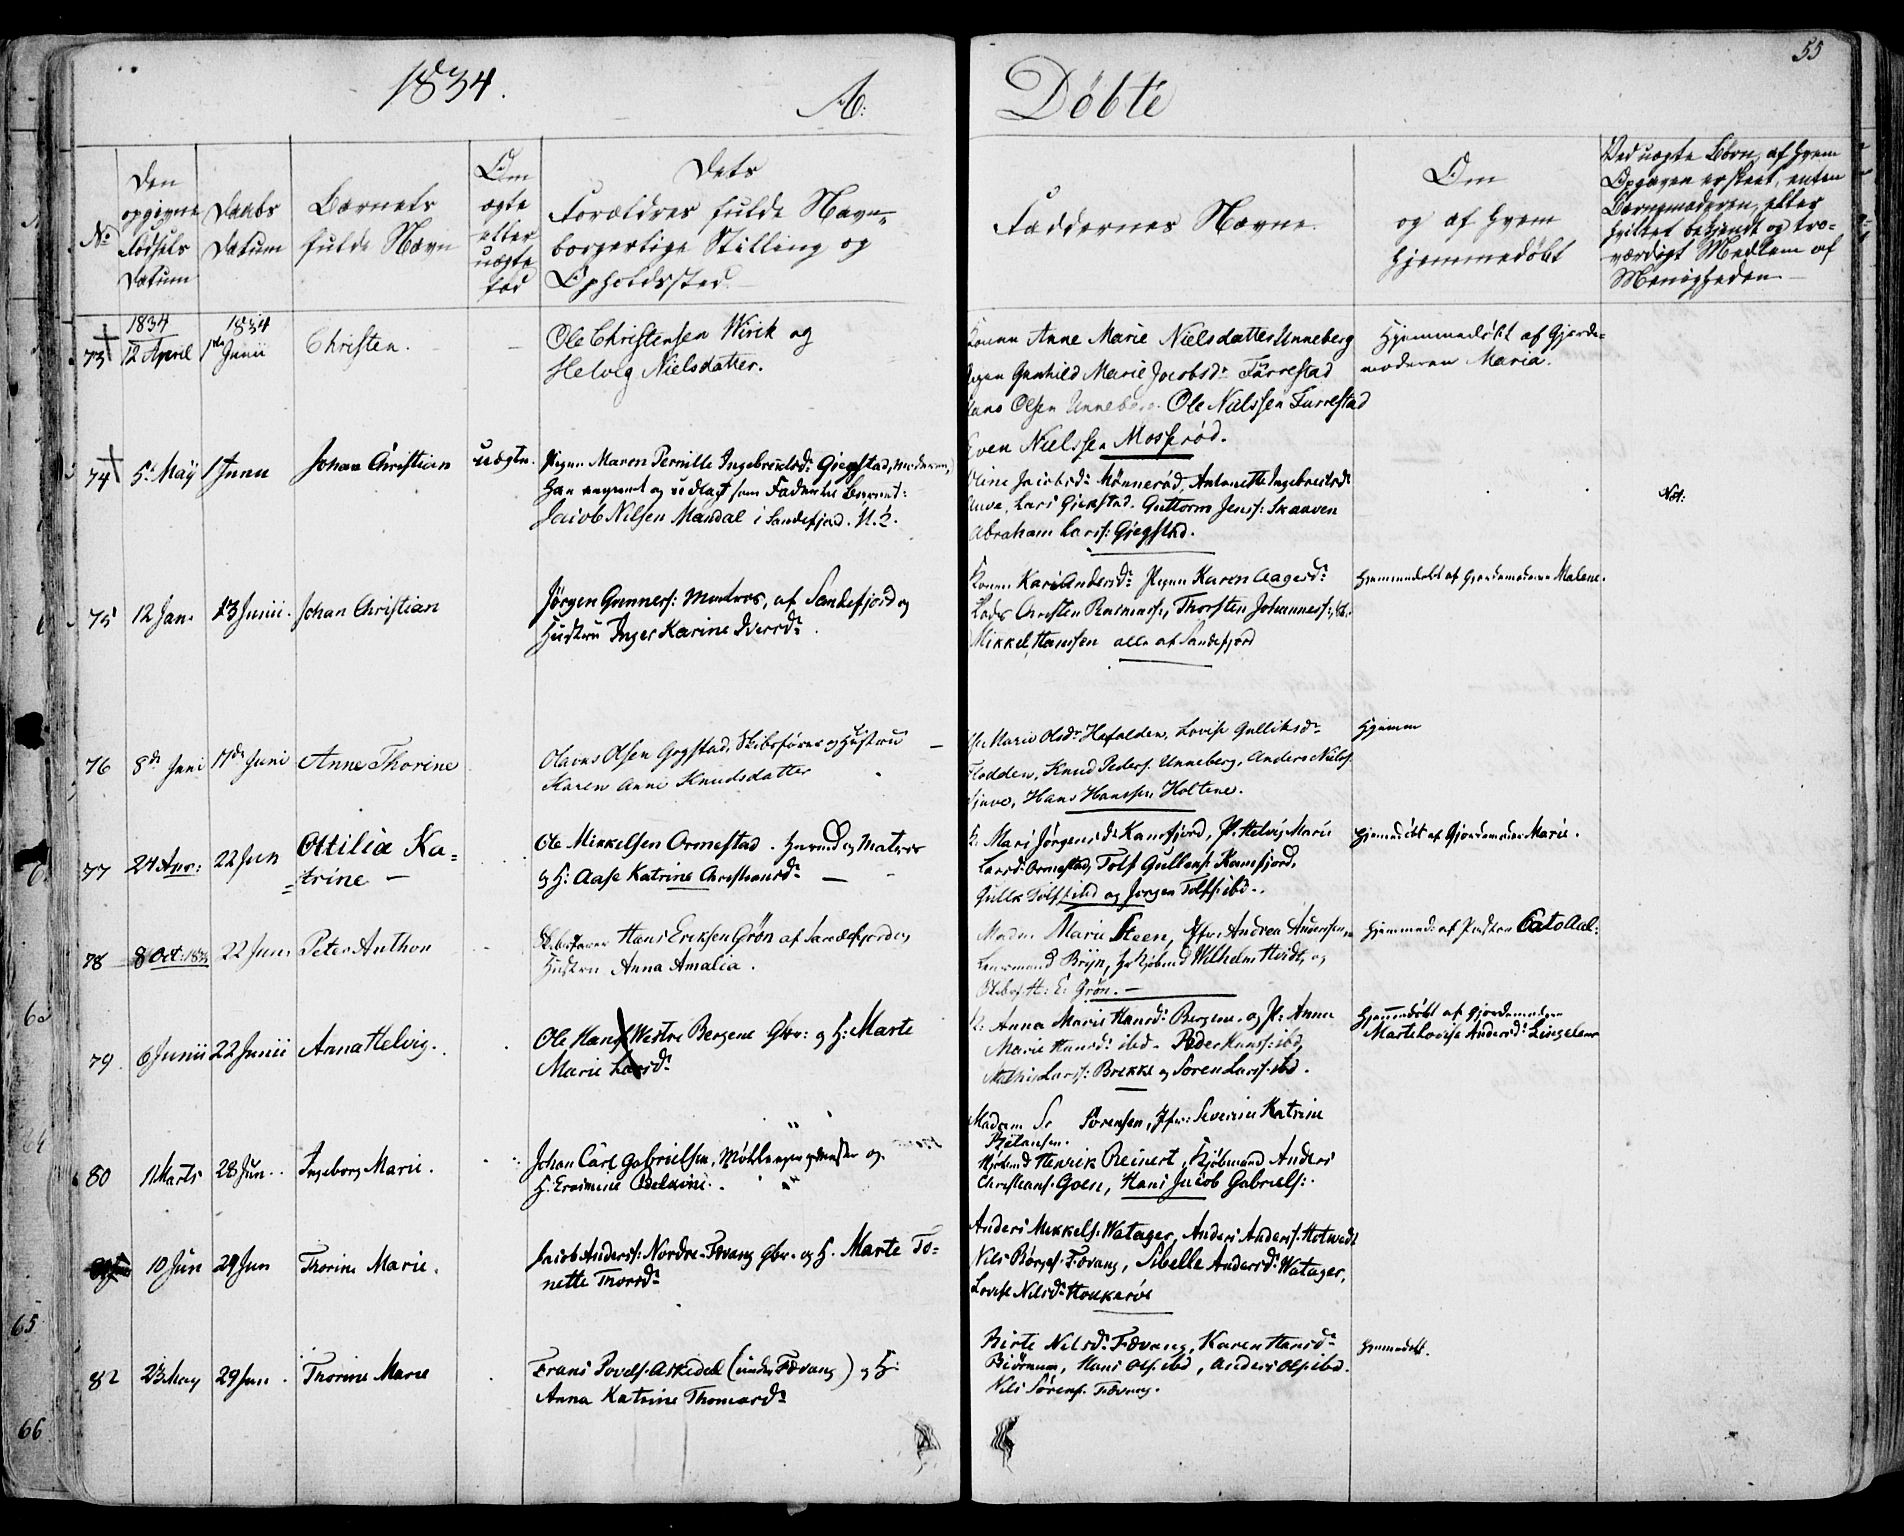 1834. A. Døbte 55
No
Den opgivne Fødsels Datum
Daabs Datum
Barnets fulde Navn
Om ægte eller uægte fød
Dets Forældres fulde Navne borgerlige Stilling og Opholdssted
Faddernes Navne.
Om og af hvem hjemmedøbt
Ved uægte Børn, af hvem Opgaven er skeet, enten Barnemoderen, eller hvilket bekjendt og troværdigt Medlem af Menigheden
1834 1834
73 12 April 1ste Junii Christen. Ole Christensen Wirik og
Helvig Nielsdatter.
Konen Anne Marie Nielsdatter Unneberg
Pigen Gunhild Marie Jacobsdr Furrestad
Hans Olsen Unneberg. Ole Nielssen Furrestad
Even Nielssen Mosserød.
Hjemmedøbt af Gjorde-
moderen Maria.
74 5 May 1 Junii Johan Christian uægte. Pigen Maren Pernille Ingebretsdr Gjegstad, Moderen,
har angivet og udlagt som Fader til Barnet:
Jacob Nilsen Mandal i Sandefjord.
Oline Jacobsdr Mønnerød, Antonette Ingebretsdr
Lars Gjekstad. Guttorm Jenss: Skaaven
Abraham Larss: Gjegstad.
75 12 Jan. 23 Junii. Johan Christian Jørgen Gunners: Matros, af Sandefjord og
Hustru Inger Karine Iversdr.
Konen Kari Andersdr Pigen Karen Aagesdr
Lods Christen Rasmuss:, Thorsten Johanness:,
Mikkel Hanssen alle af Sandefjord
Hjemmedøbt af Gjordemoderen Malene.
76 8de Juni 17de Juni Anne Thorine Olavus Olsen Gogstad, Skibsfører og Hustru
Karen Anne Knudsdatter
Marie Olsdr Hafalden, Lovise Gulliksdr
Flodden, Knud Peders. Unneberg, Anders Niels.
Hans Hanssen Holtene.
Hjemm
77 24 Apr: 22 Jun Ottilia Ka-
trine — Ole Mikkelsen Ormestad. Huusmd og Matros
og H: Aase Katrine Christiansdr —
K: Mari Jørgensdr Kamfjord, P: Helvig Marie
Larsdr Ormestad, Tolf Gullens. Kamfjord,
Gullk Tolfs ibd og Jørgen Tolfs: ibd.
Hjemmedøbt af Gjordemoder Marie.
78 8 Oct: 22 Jun. Peter Anthon Skibsfører Hans Eriksen Grøn af Sandefjord og
Hustru Anna Amalia.
Madm Marie Steen, Jfr: Andrea Anderssen,
Lensmand Bryn, Kjøbmd Wilhelm Hvidt, og
Skibsf. H: E: Grøn. —
Hjemmed: af Pastor Cato Aal:
79. 6 Junii 22 Junii Anna Helvig. Ole Hans: Westre Bergene Gbr: og H: Marte
Marie Larsdr
K: Anna Marie Hansdr Bergene. og P: Anne
Marie Hansdr ibd. Peder Hanss: ibd,
Mathis Larss: Brekke og Søren Larss: ibd.
Hjemmedøbt af Gjordemoder
Marte Lovise Andersdr Lingelem
80 11 Marts 28 Jun. Ingeborg Marie. Johan Carl Gabrielsen, og
H: Erasmine
Madam Sørensen, Jfr: Severine Katrine
Kjøbmd Henrik Reinert, Kjøbmand Anders
Christians. Goen, Hans Jacob Gabriels:.
10 Jun 29 Jun Thorine Marie. Jacob Anderss: Nordre-Fævang Gbr. og H. Marte To-
nette Thorsdr
Anders Mikkels. Watager, Anders Anderss. Hotvedt
Nils Børges. Fævang, Sibelle Andersdr Watager,
Lovise Nilsdr Houkerøe
82 23 May 29 Jun. Thorine Marie Frans Povels. Askedal (under Fævang) og H:
Anna Katrine Thomasdr
Birte Nilsdr Fævang, Karen Hansdr
Biørnum, Hans Ols. ibd, Anders Ols. ibd.
Nils Sørens. Fævang.
Hjemmedøbt.
65
66